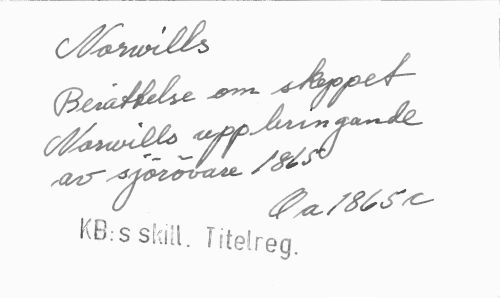 Norwills
Berättelse om skeppet
Norwills uppbringande
av sjörövare 1865
Oa 1865 c
KB:s skill. Titelreg.